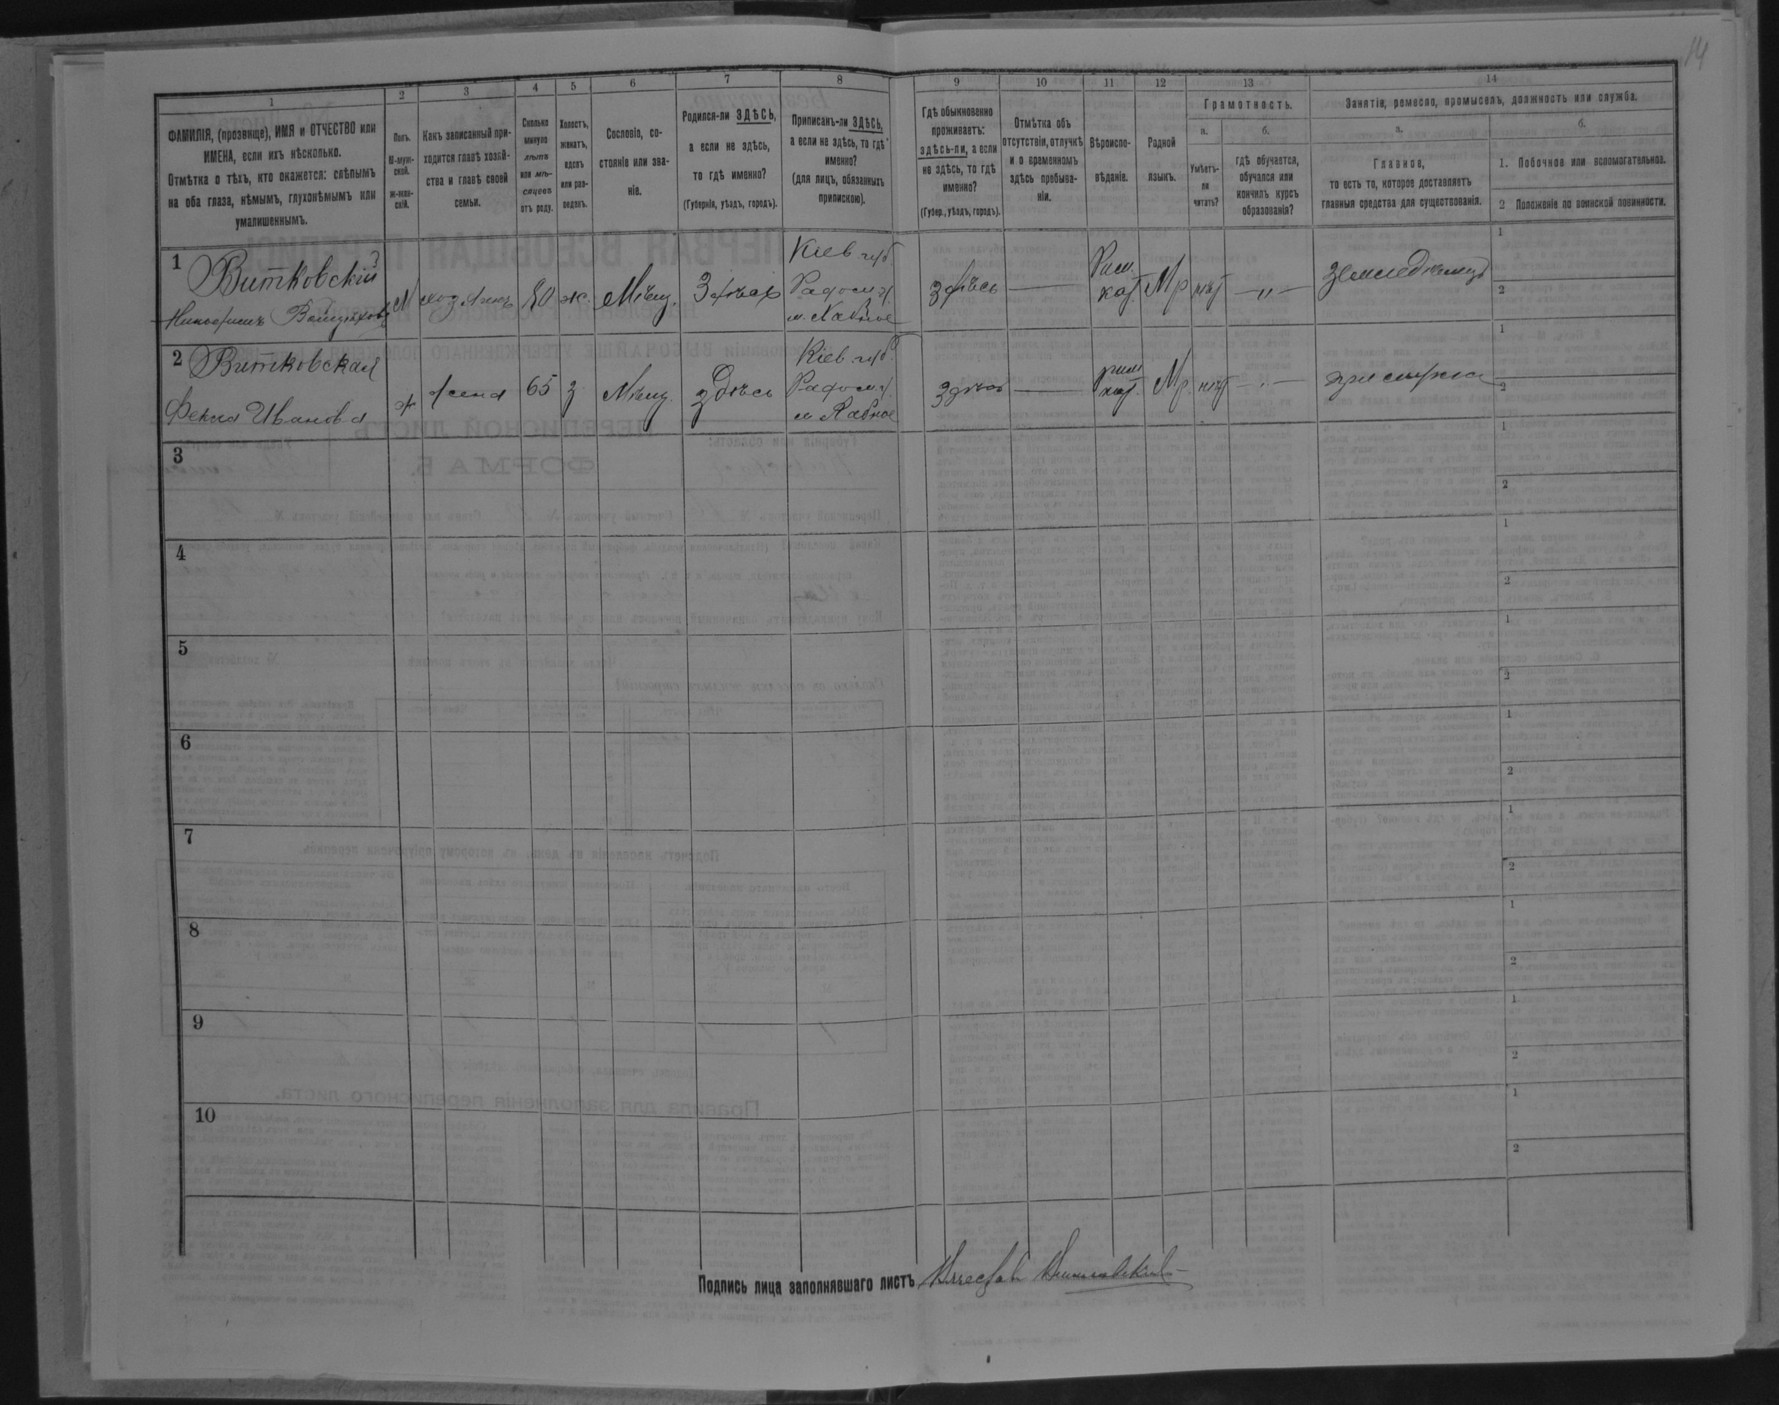 14
1 2 3 4 5 6 7 8 9 10 11 12 13 14
ФАМИЛІЯ, (прозвище), ИМЯ и ОТЧЕСТВО или
ИМЕНА, если ихъ нѣсколько.
Отмѣтка о тѣхъ, кто окажется: слѣпымъ
на оба глаза, нѣмымъ, глухонѣмымъ или
умалишеннымъ.
Полъ.
М-муж-
ской.
Ж-жен-
скій.
Какъ записанный при-
ходится главѣ хозяй-
ства и главѣ своей
семьи.
Сколько
минуло
лѣтъ
или мѣ-
сяцевъ
отъ роду.
Холостъ,
женатъ,
вдовъ
или раз-
веденъ.
Сословіе, со-
стояніе или зва-
ніе.
Родился-ли ЗДѢСЬ,
а если не здѣсь,
то гдѣ именно?
(Губернія, уѣздъ, городъ).
Приписанъ-ли ЗДѢСЬ,
а если не здѣсь, то гдѣ
именно?
(для лицъ, обязанныхъ
припискою).
Гдѣ обыкновенно
проживаетъ:
здѣсь-ли, а если
не здѣсь, то гдѣ
именно?
(Губер., уѣздъ, городъ).
Отмѣтка объ
отсутствіи, отлучкѣ
и о временномъ
здѣсь пребыва-
ніи.
Вѣроиспо-
вѣданіе.
Родной
языкъ.
Грамотность.
а.
Умѣетъ-
ли
читать?
б.
гдѣ обучается,
обучался или
кончилъ курсъ
образованія?
Занятіе, ремесло, промыселъ, должность или служба.
а.
Главное,
то есть то, которое доставляетъ
главныя средства для существованія.
б.
1. Побочное или вспомогательное.
2 Положеніе по воинской повинности.
1 Витковскій
М хозяинъ 80 ж. Мѣщ. Здѣсь
Кіев губ
Радом у.
м. Хабное
Здѣсь
Рим
кат
Мр нѣт — „ — земледѣлецъ
1
2
2 Витковская
Фекла Иванова
ж жена 65 з Мѣщ. здѣсь
Кіев губ
Радом у.
м Хабное
Здѣсь
рим
кат.
Мр. нѣт — „ —
1
2
3
1
2
4
1
2
5
1
2
6
1
2
7
1
2
8
1
2
9
1
2
10
1
2
Подпись лица заполнявшаго листъ